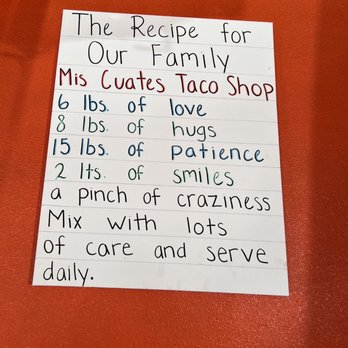 The Recipe for
Our Family
Mis Cuates Taco Shop
6 lbs. of love
8 lbs. of hugs
15 lbs. of Patience
2 lts. of smiles
a pinch of craziness
Mix with lots
of care and serve
daily.